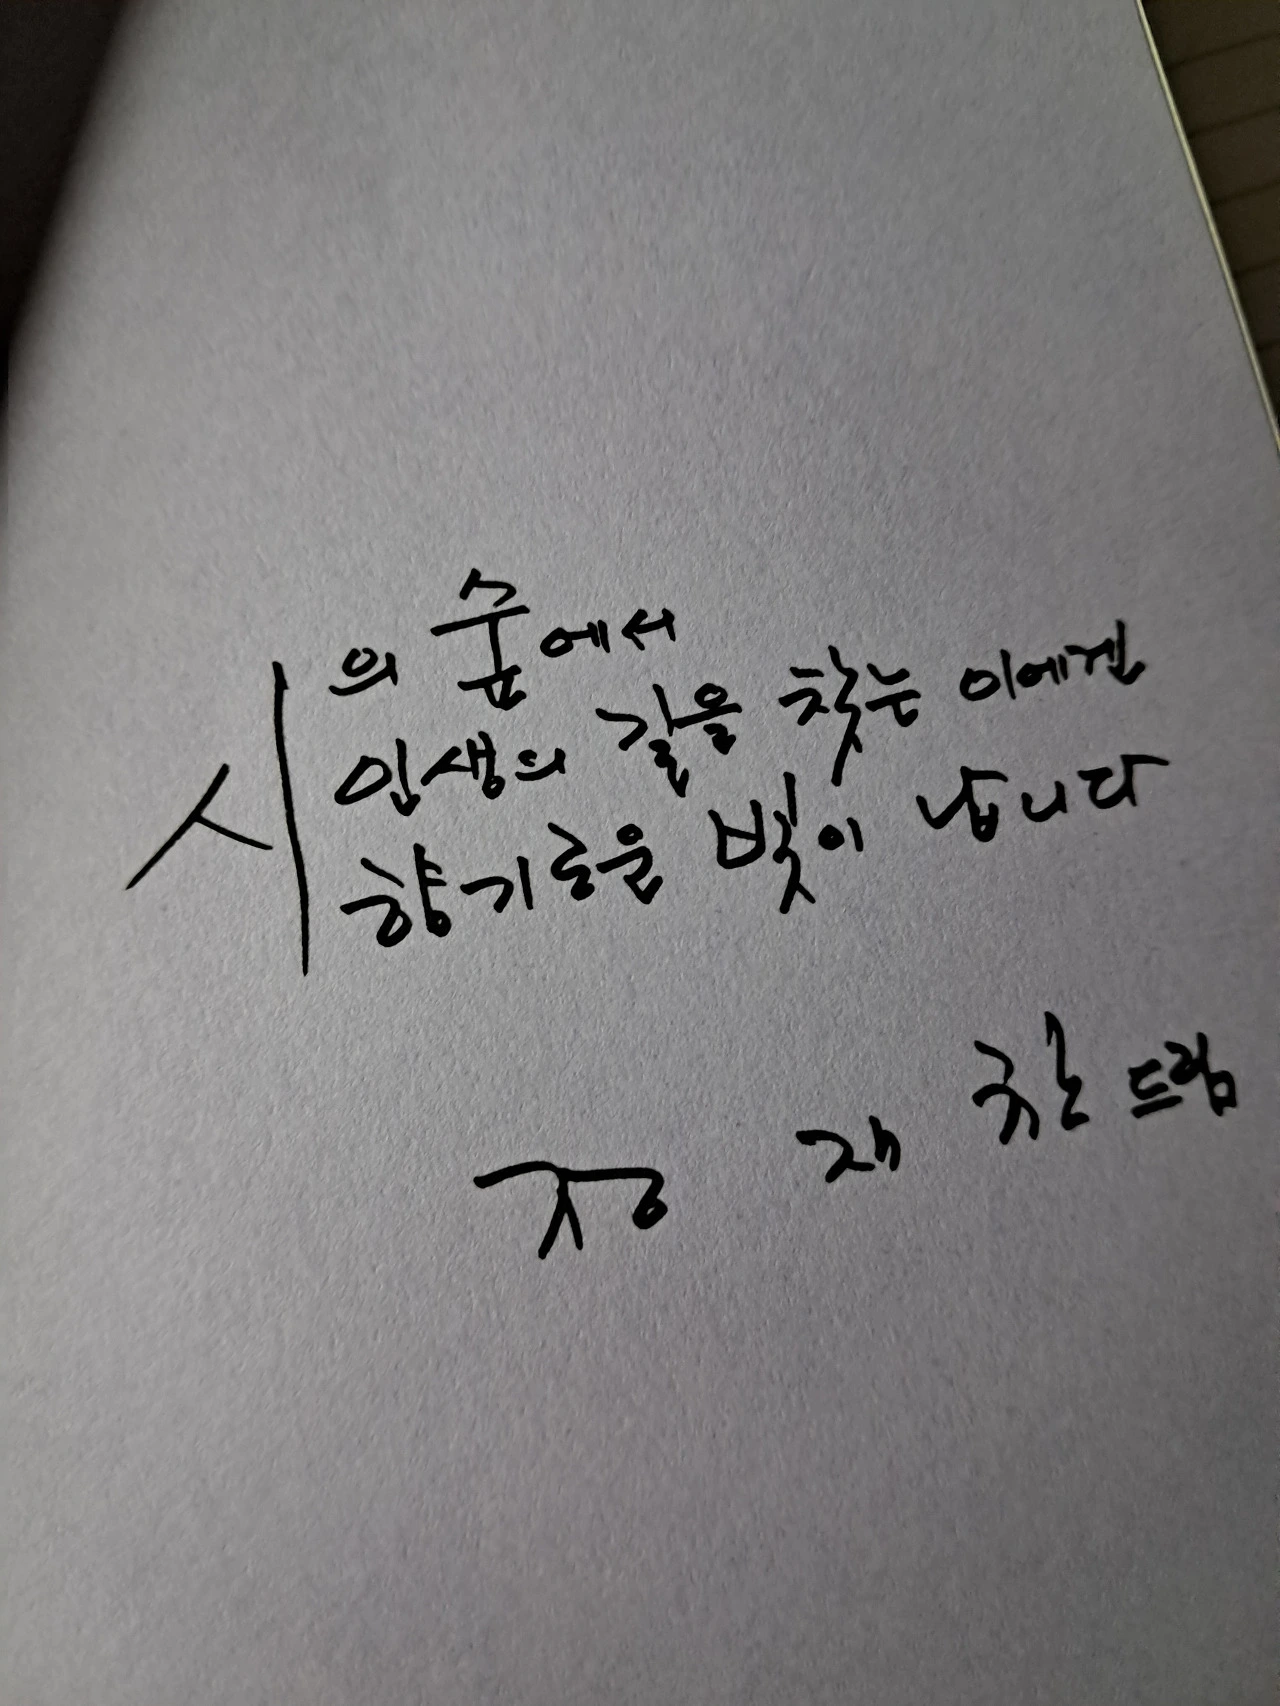 시의 숲에서
인생의 길을 찾는 이에겐
향기로운 빛이 납니다
정 재 찬 드림